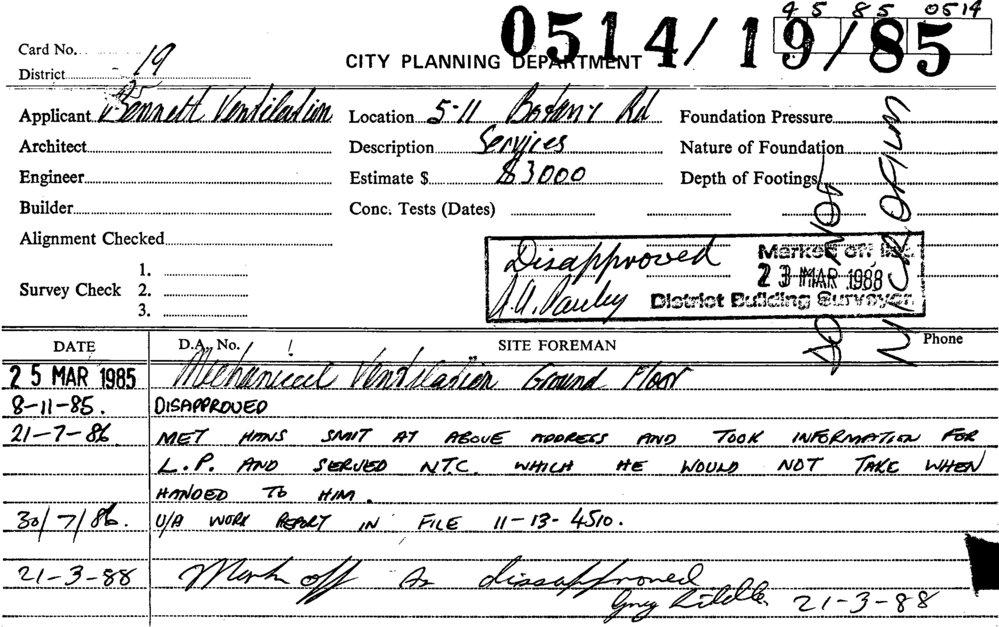 45 85 0514
0514/19/85
Card No.
District 19
CITY PLANNING DEPARTMENT
Applicant Bennett Ventilation
Location 5-11 Botany Rd
Foundation Pressure
Architect
Description Services
Nature of Foundation
Engineer
Estimate $ $3000
Depth of Footings
Builder
Conc. Tests (Dates)
Alignment Checked
Survey Check 1.
2.
3.
DO NOT
MICROFILM
Disapproved
Marked off list
23 MAR 1988
District Building Surveyor
DATE D.A., No. SITE FOREMAN Phone
25 MAR 1985 Mechanical Ventilation Ground Floor
8-11-85. DISAPPROVED
21-7-86 MET HANS SMIT AT ABOVE ADDRESS AND TOOK INFORMATION FOR
L.P. AND SERVED NTC. WHICH HE WOULD NOT TAKE WHEN
HANDED TO HIM.
30/7/86. U/A WORK REPORT IN FILE 11-13-4510.
21-3-88 Mark off as dissapproved
21-3-88